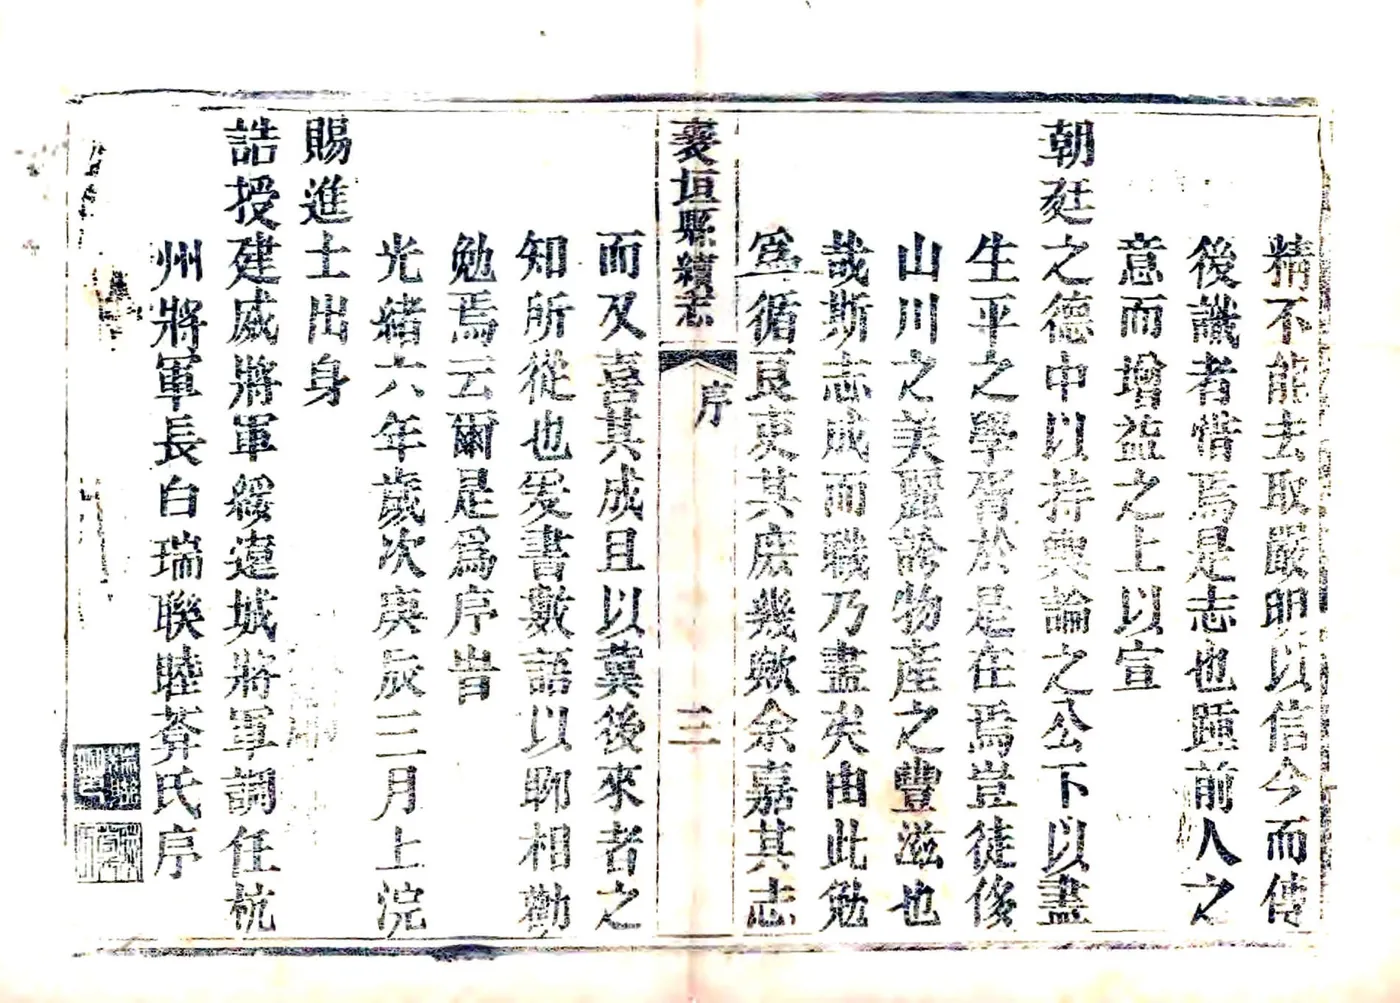 精不能去取嚴明以信今而傳
後識者惜焉是志也踵前人之
意而增益之上以宣
朝廷之德中以持輿論之公下以盡
生平之學胥於是在焉豈徒侈
山川之美麗誇物產之豐滋也
哉斯志成而職乃盡矣由此勉
為循良吏其庶幾歟余嘉其志
襄垣縣續志
序
三
而又喜其成且以冀後來者之
知所從也爰書數語以聊相勸
勉焉云爾是為序旹
光緒六年歲次庚辰三月上浣
賜進士出身
誥授建威將軍綏遠城將軍調任杭
州將軍長白瑞聯睦菴氏序